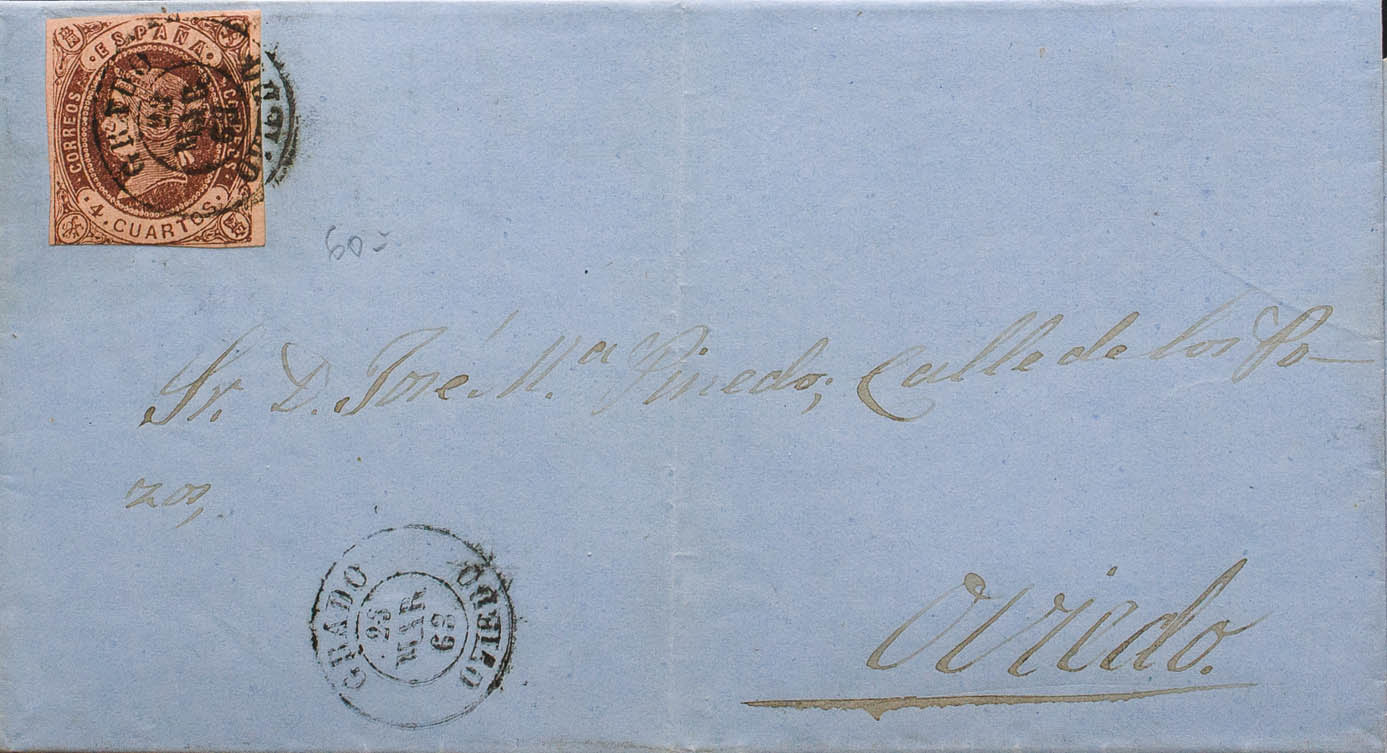 · ESPAÑA ·
CORREOS
CORREOS
· 4. CUARTOS ·
GRADO
23
MAR
63
OVIEDO
60
Sr. D. José Mª Pinedo, Calle de los Po-
zos,
Oviedo.
GRADO
23
MAR
63
OVIEDO